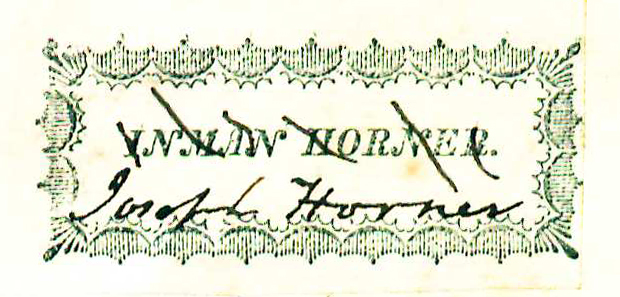 INMAN HORNER.
Joseph Horner